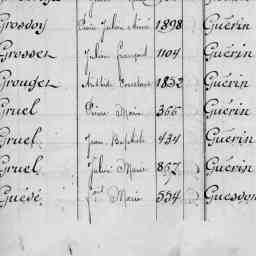 Grosdoy Julien Aimé 1898 Guérin
Grosset Julien François 1104 Guérin
Grouger Mathilde 1832 Guérin
Gruel Pierre Marie 366 Guérin
Gruel Jean Baptiste 434 Guérin
Gruel Julien Marie 867 Guérin
Guévé Marie 554 Guesdon